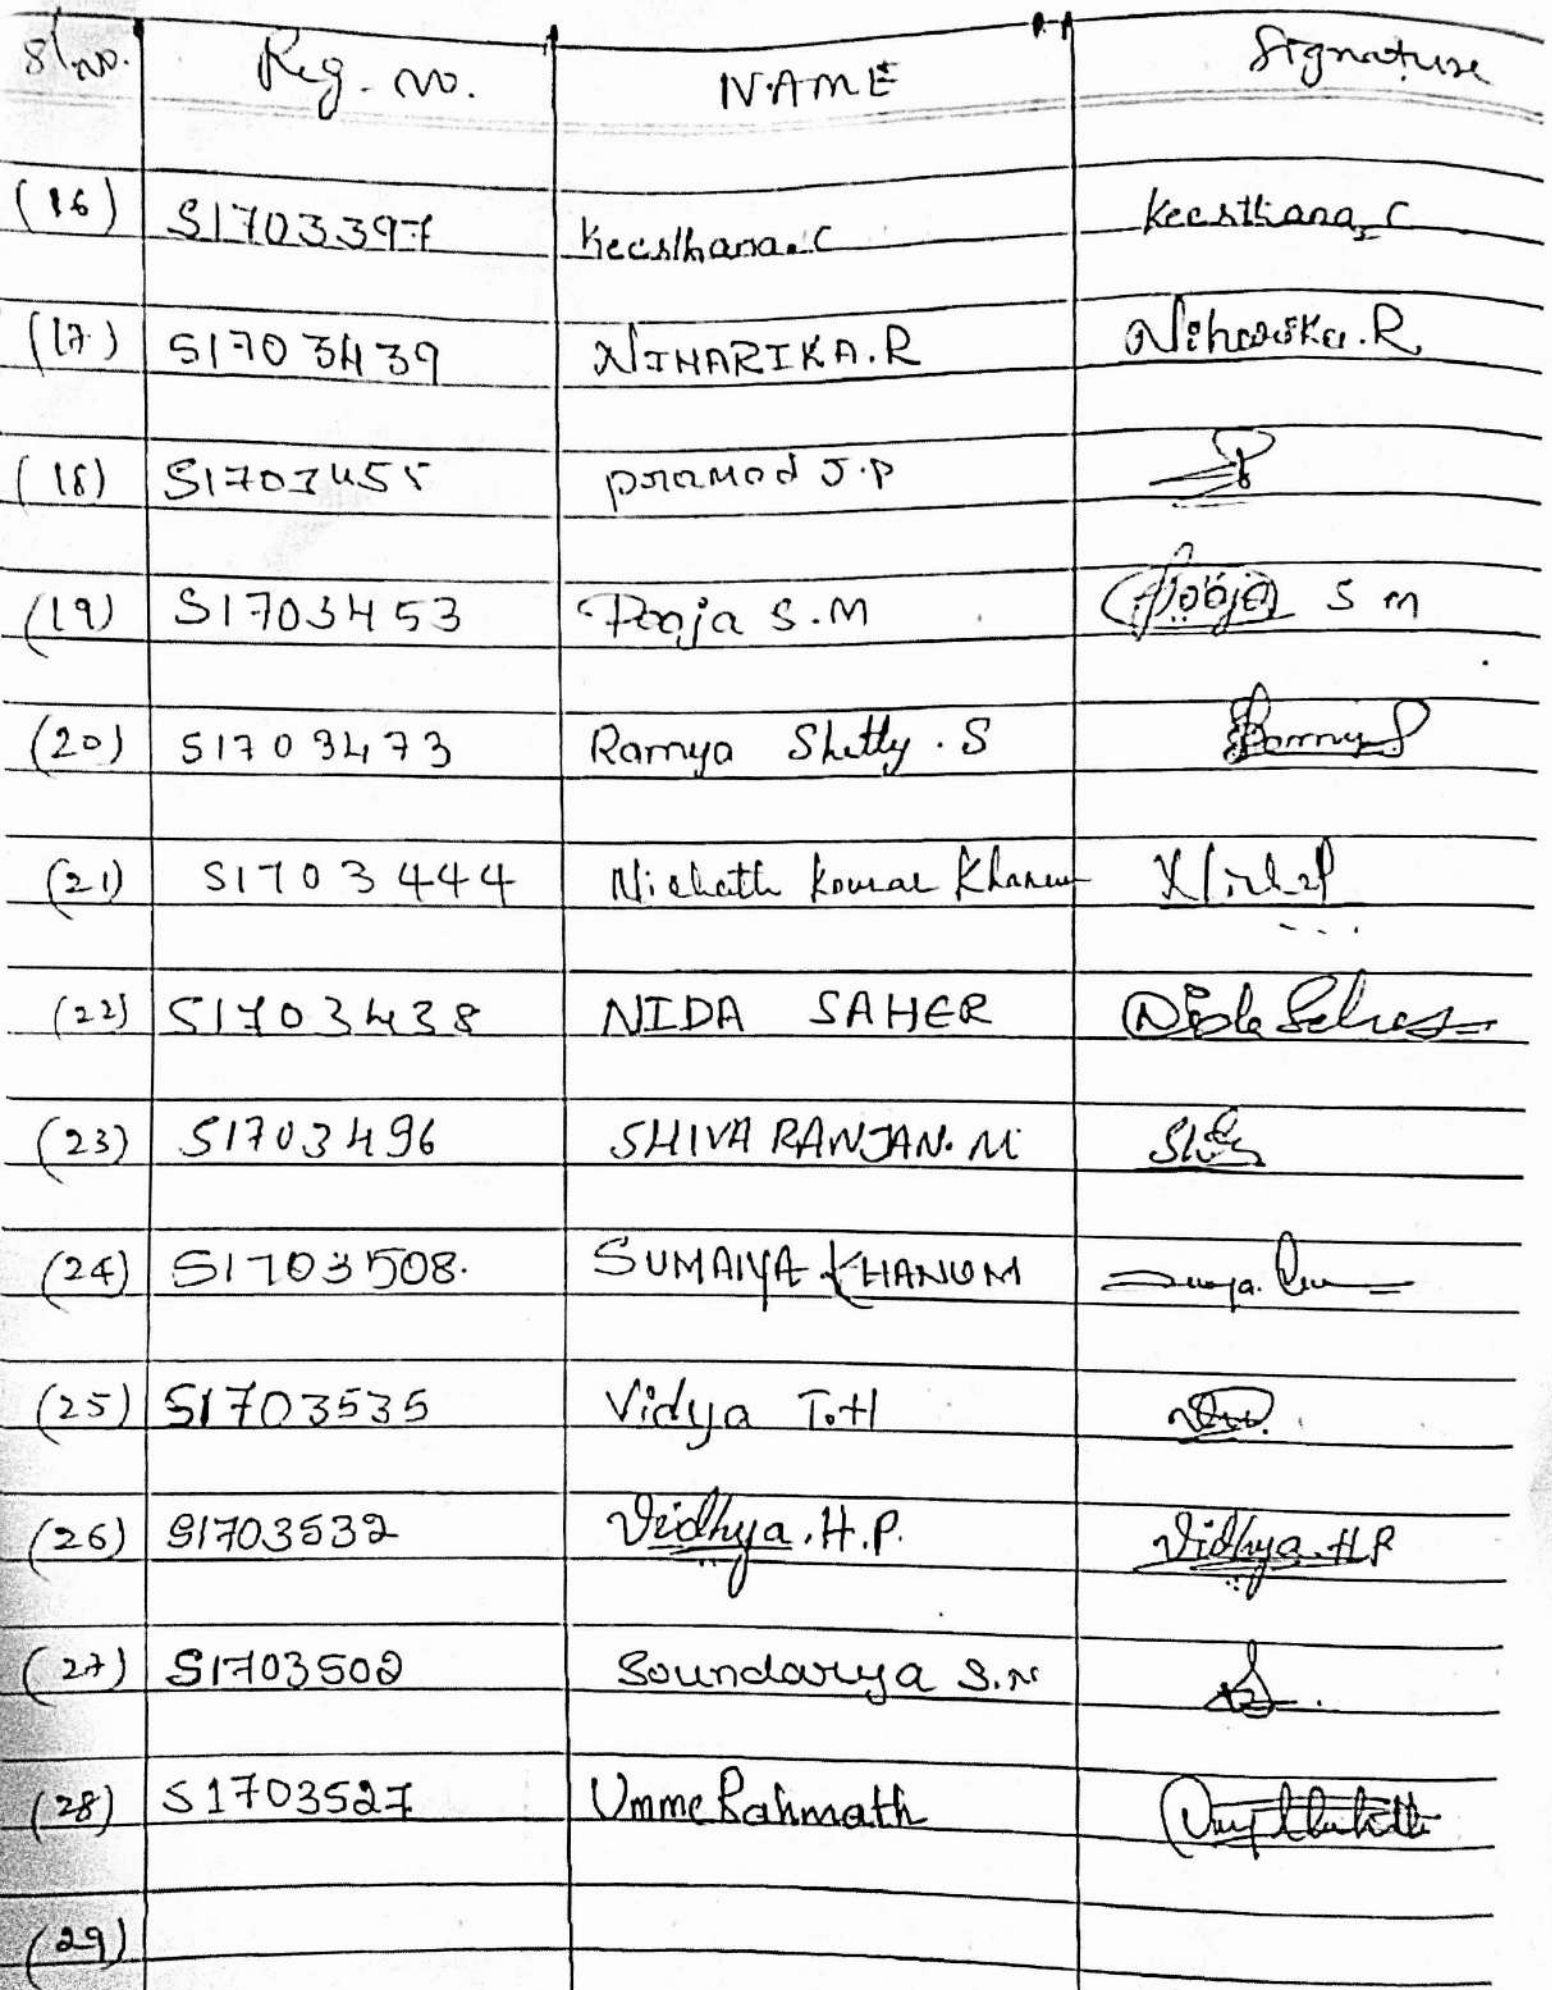 Sl no. Reg. no. NAME Signature
(16) S1703397 Keerthana.C Keerthana.C
(17) S1703439 NIHARIKA.R Niharika.R
(18) S1703455 pramod J.P
(19) S1703453 Pooja S.M Pooja S M
(20) S1703473 Ramya Shetty.S
(21) S1703444 Nishath Kousar Khanum
(22) S1703438 NIDA SAHER Nida Saher
(23) S1703496 SHIVA RANJAN.M
(24) S1703508. SUMAIYA KHANUM
(25) S1703535 Vidya T.H
(26) S1703532 Vidhya.H.P. Vidhya.H.P
(27) S1703502 Soundarya S.N
(28) S1703527 Umme Rahmath
(29)